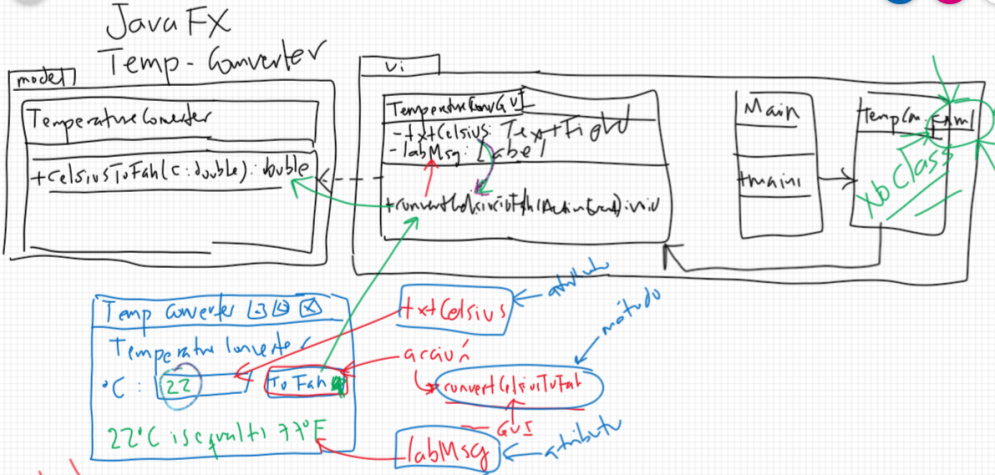 JavaFX
Temp-Converter
model
TemperatureConverter
+CelsiusToFah(c:double):double
ui
TemperatureConvGUI
-txtCelsius: TextField
-labMsg: Label
+convertCelsiusToFah(ActionEvent):void
Main
+main
TempCon.fxml
No Class
Temp Converter
Temperature Converter
°C: 22 To Fah
22°C is equal to 77°F
txtCelsius
atributo
método
acción
convertCelsiusToFah
GUI
labMsg
atributo